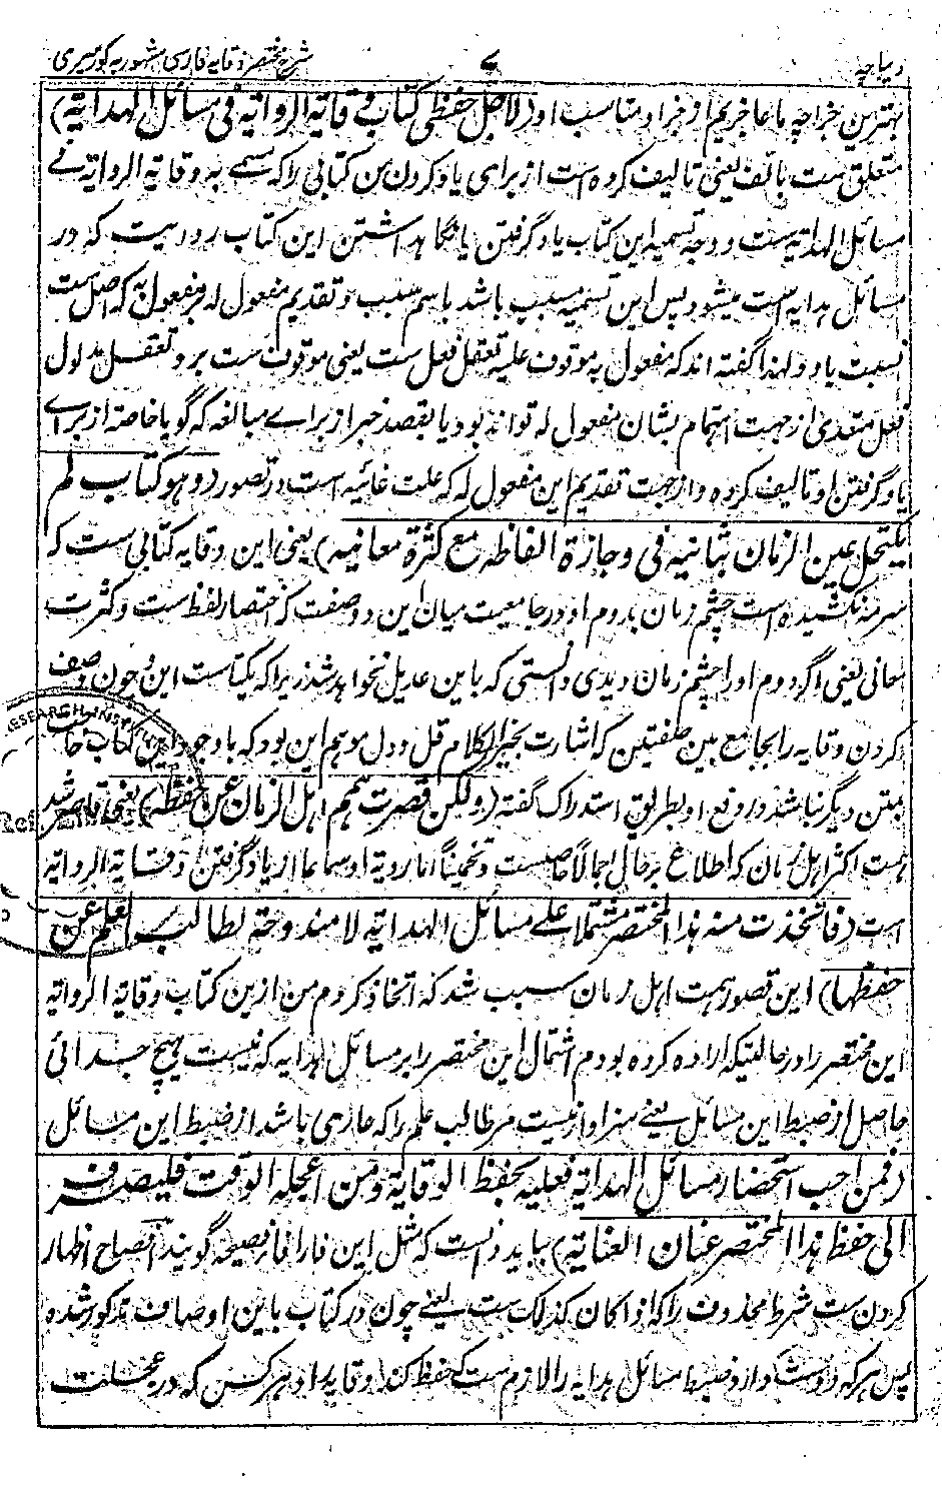 دیباچه ۷ شرح مختصر وقایه فارسی مشهور به کور میری
بهترین جزا چه ما عاجزیم از جزاء مناسب او (لاجل حفظی کتاب وقایة الروایة فی مسائل الهدایة)
متعلق ست بالف یعنی تالیف کرده است از برای یاد کردن من کتابی را که مسمے به وقایة الروایة فے
مسائل الهدایة ست و وجه تسمیه این کتاب یاد گرفتن یا نگاهداشتن این کتاب روایت که در
مسائل هدایه است میشود پس این تسمیه مسبب باشد باسم سبب و تقدیم مفعول له بر مفعول به که اصل ست
نسبت باو و لهذا گفته اند که مفعول به موقوف علیه تعقل فعل ست یعنی موقوف ست برو تعقل مدلول
فعل متعدی از جهت اهتمام بشان مفعول له تواند بود یا بقصد خبر از براے مبالغه که گویا خاصة از براے
یاد گرفتن او تالیف کرده و از جهت تقدیم این مفعول له که علت غائیه است در تصور (و هو کتاب لم
یکتحل عین الزمان بثانیه فی وجازة الفاظه مع کثرة معانیه) یعنی این وقایه کتابی ست که
سرمه نکشیده است چشم زمان بدوم او در جامعیت میان این دو صفت که اختصار لفظ ست و کثرت
معانی یعنی اگر دوم او را چشم زمان دیدی دانستی که باین عدیل نخواهد شد زیرا که یکتاست این و چون وصف
کردن وقایه را بجامع بین صفتین که اشارت بخیر الکلام قل و دل موهم این بود که باوجود این کتاب حاجت
بمتن دیگر نباشد در رفع او بطریق استدراک گفته (ولکن قصرت همم اهل الزمان عن حفظه) یعنی قاصر شد
همت اکثر اهل زمان که اطلاع بر حال اجمالا حاصلست و تخمینا اما رویة او سماعا از یاد گرفتن وقایة الروایة
است (فاتخذت منه هذا المختصر مشتملا علے مسائل الهدایة لا مندوحة لطالب العلم عن
حفظها) این قصور همت اهل زمان سبب شد که اتخاذ کردم من ازین کتاب وقایة الروایة
این مختصر را در حالتیکه اراده کرده بودم اشتمال این مختصر را بر مسائل هدایه که نیست هیچ جدائی
حاصل از ضبط این مسائل یعنے سزاوار نیست مر طالب علم را که عاری باشد از ضبط این مسائل
(فمن احب استحضار مسائل الهدایة فعلیه بحفظ الوقایة و من اعجله الوقت فلیصرف
الی حفظ هذا المختصر عنان العنایة) بباید دانست که مثل این فا را فاء فصیحه گویند افصاح اظهار
کردن ست شرط محذوف را که اذا کان کذلک ست یعنے چون در کتاب باین اوصاف مذکور شده
پس هر که دوست دارد ضبط مسائل هدایه را لازم ست که حفظ کند وقایه را و هر کس که در عجلت